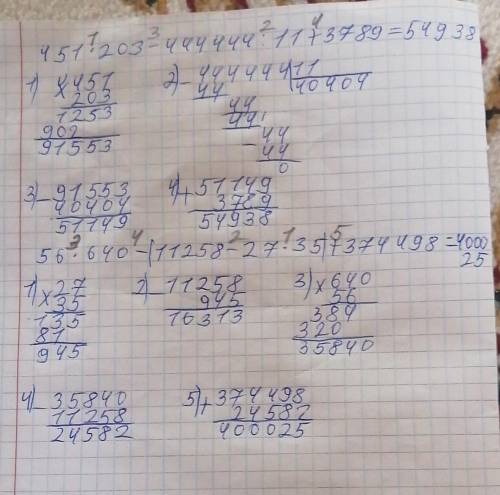 451 · 203 - 444444 : 11 + 3789 = 54938
1 3 2 4
1) × 451
203
1253
902
91553
2) - 444444 | 11
44 | 40404
44
44
- 44
44
0
3) - 91553
40404
51149
4) + 51149
3789
54938
56 · 640 - (11258 - 27 · 35) + 374498 = 4000
25
3 4 2 1 5
1) × 27
35
135
81
945
2) - 11258
945
10313
3) × 640
56
384
320
35840
4) - 35840
11258
24582
5) + 374498
24582
400025